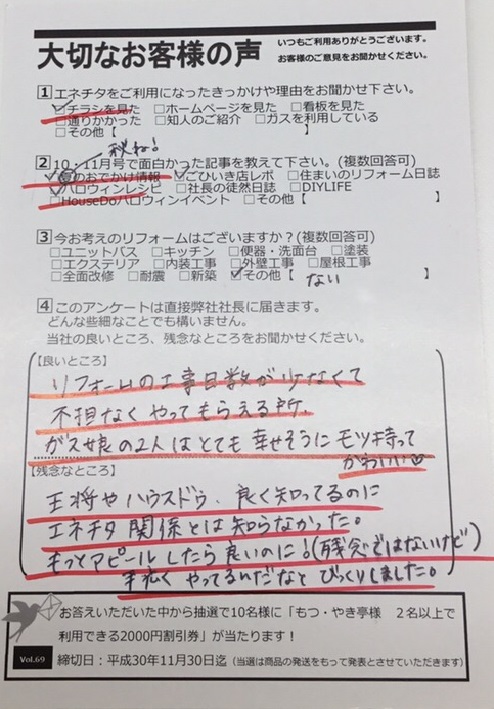 大切なお客様の声
いつもご利用ありがとうございます。
お客様のご意見をお聞かせください。
1 エネチタをご利用になったきっかけや理由をお聞かせ下さい。
☑チラシを見た □ホームページを見た □看板を見た
□通りかかった □知人のご紹介 □ガスを利用している
□その他【 】
秋ね!
2 10・11月号で面白かった記事を教えて下さい。(複数回答可)
☑夏のおでかけ情報 ☑ごひいき店レポ □住まいのリフォーム日誌
☑ハロウィンレシピ □社長の徒然日誌 □DIYLIFE
□HouseDoハロウィンイベント □その他【 】
3 今お考えのリフォームはございますか?(複数回答可)
□ユニットバス □キッチン □便器・洗面台 □塗装
□エクステリア □内装工事 □外壁工事 □屋根工事
□全面改修 □耐震 □新築 ☑その他【 ない 】
4 このアンケートは直接弊社社長に届きます。
どんな些細なことでも構いません。
当社の良いところ、残念なところをお聞かせください。
【良いところ】
リフォームの工事日数が少なくて
不担なくやってもらえる所.
ガス娘の2人はとても幸せそうにモツ持って
かわいい♡
【残念なところ】
王将やハウスドゥ、良く知ってるのに
エネチタ関係とは知らなかった。
もっとアピールしたら良いのに!(残念ではないけど)
手広くやってるんだなとびっくりしました。
お答えいただいた中から抽選で10名様に「もつ・やき亭様 2名以上で
利用できる2000円割引券」が当たります!
Vol.69
締切日:平成30年11月30日迄(当選は商品の発送をもって発表とさせていただきます)